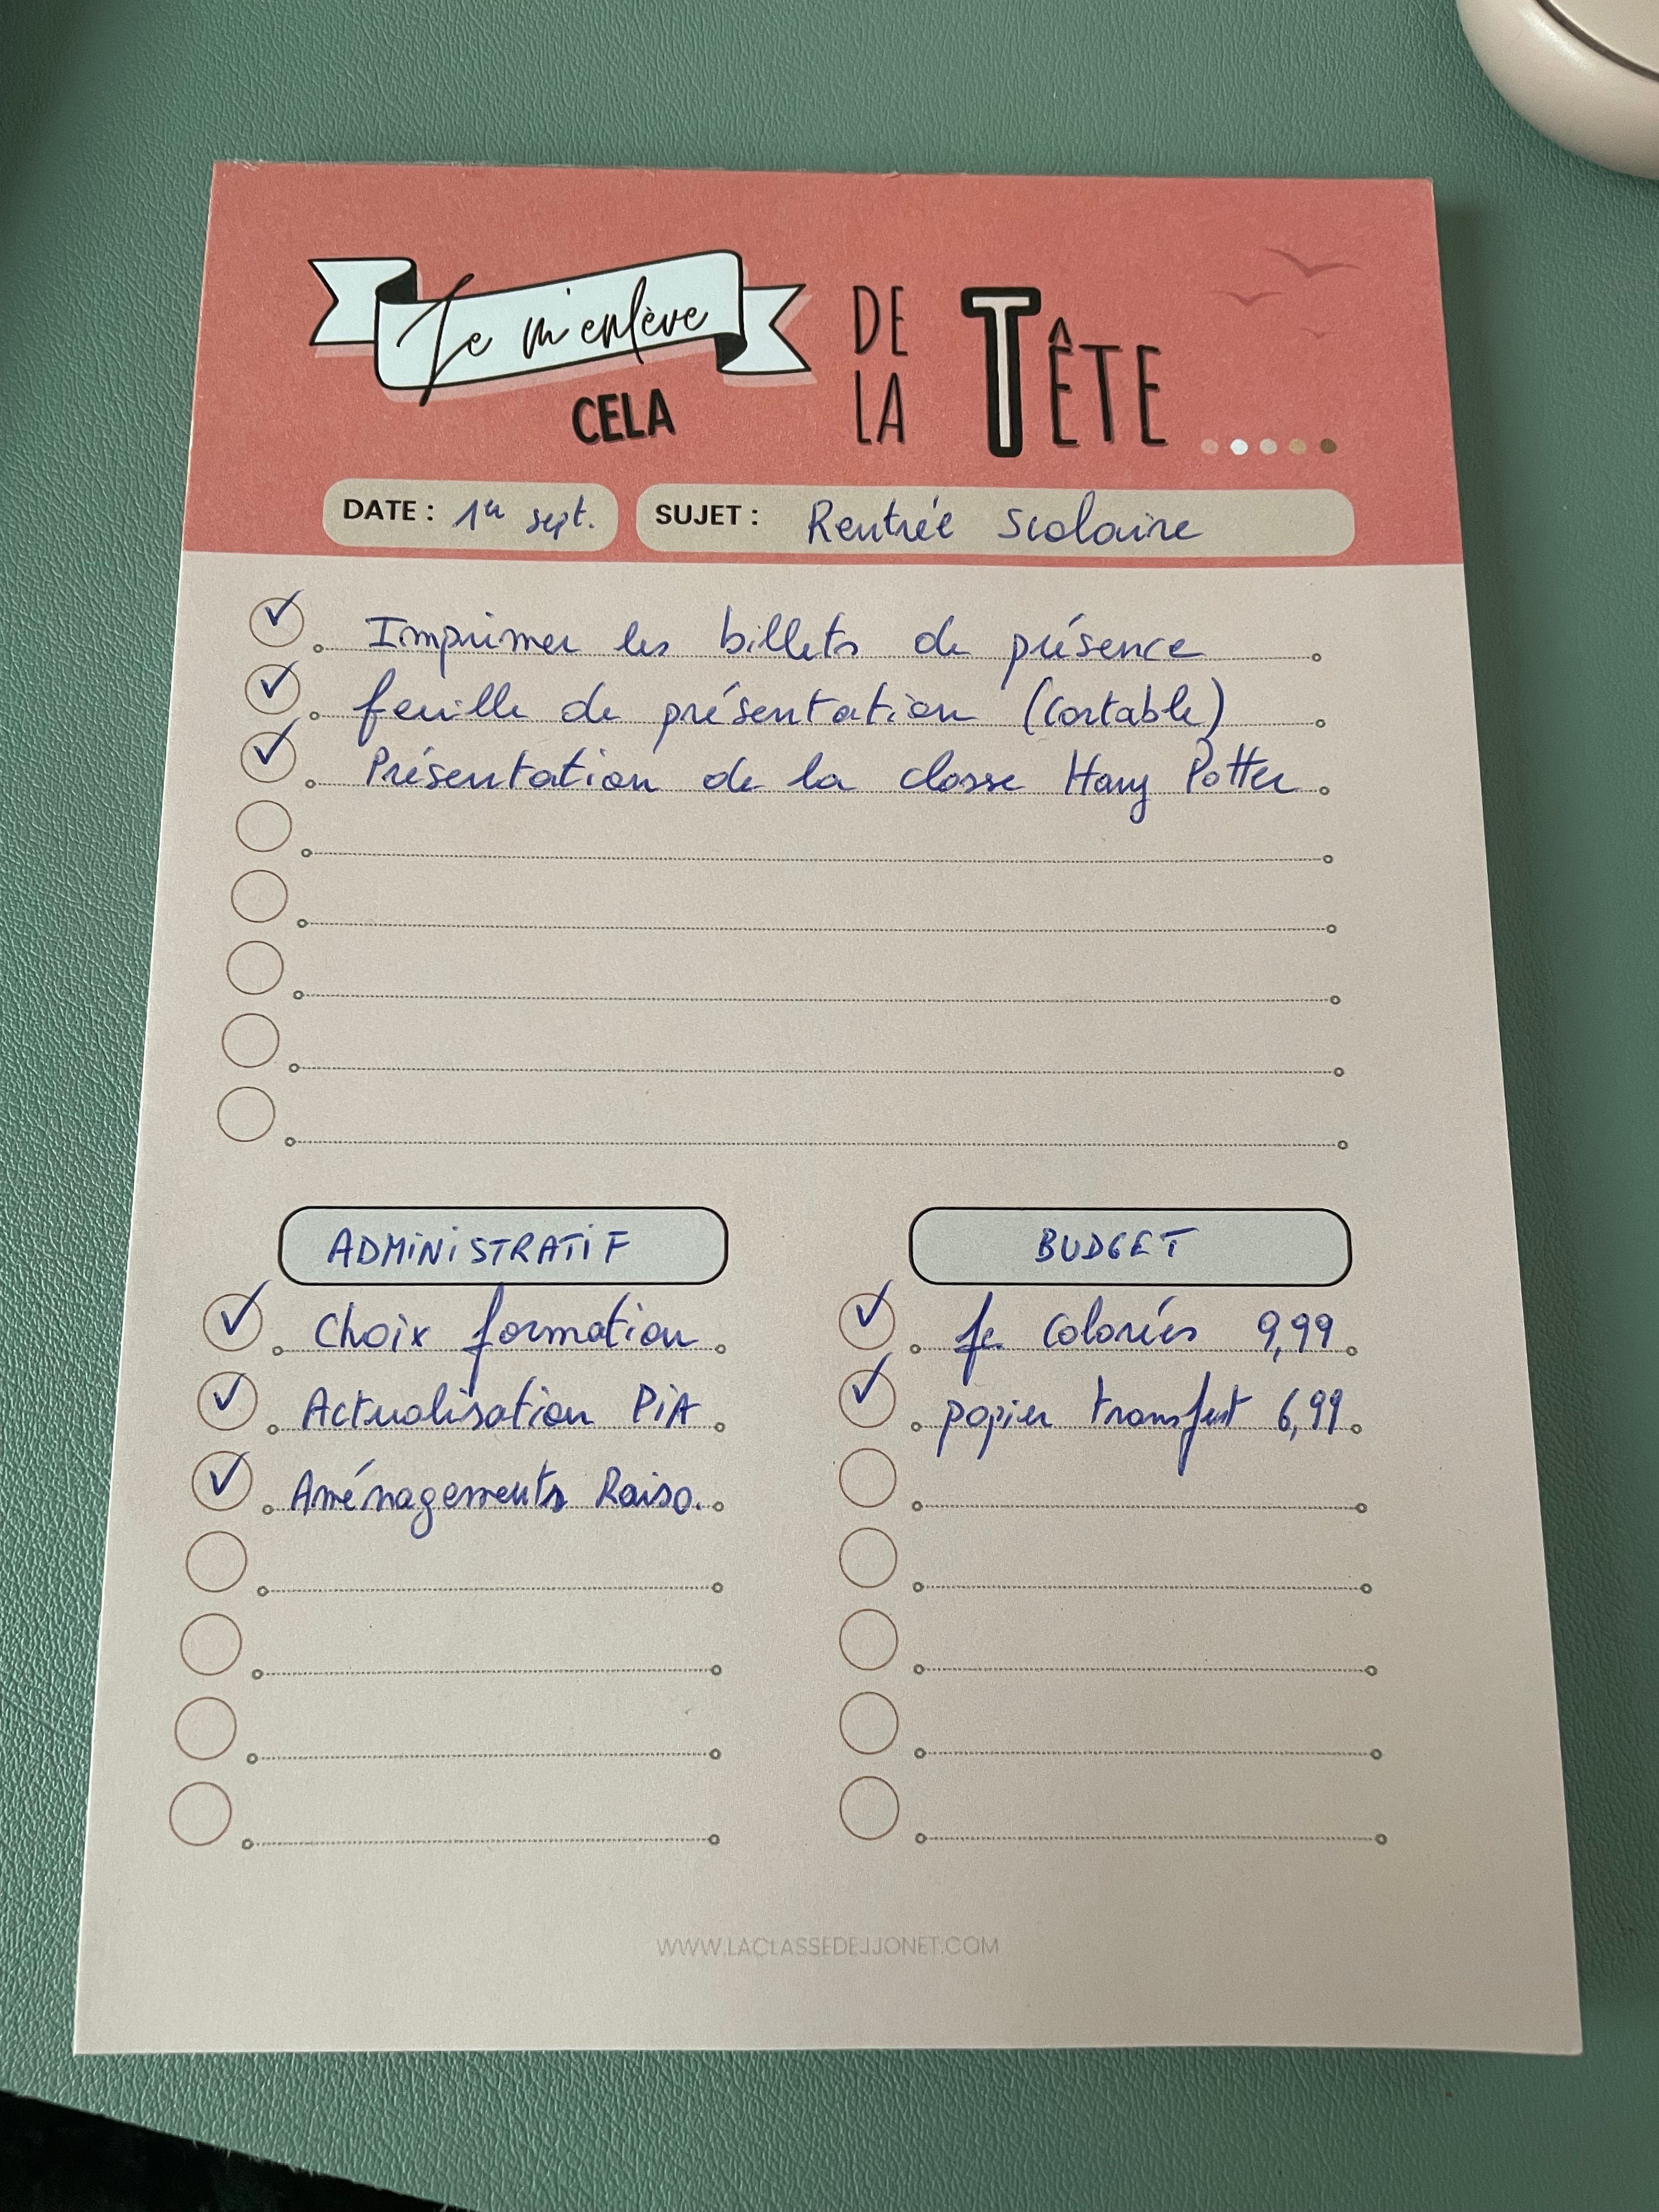 Je m'enlève
CELA
DE
LA
TÊTE .....
DATE : 1er sept.
SUJET : Rentrée Scolaire
Imprimer les billets de présence
feuille de présentation (cartable)
Présentation de la classe Harry Potter
ADMINISTRATIF
Choix formation
Actualisation PIA
Aménagements Raiso.
BUDGET
fe colorées 9,99
papier transfert 6,99
WWW.LACLASSEDEJJONET.COM